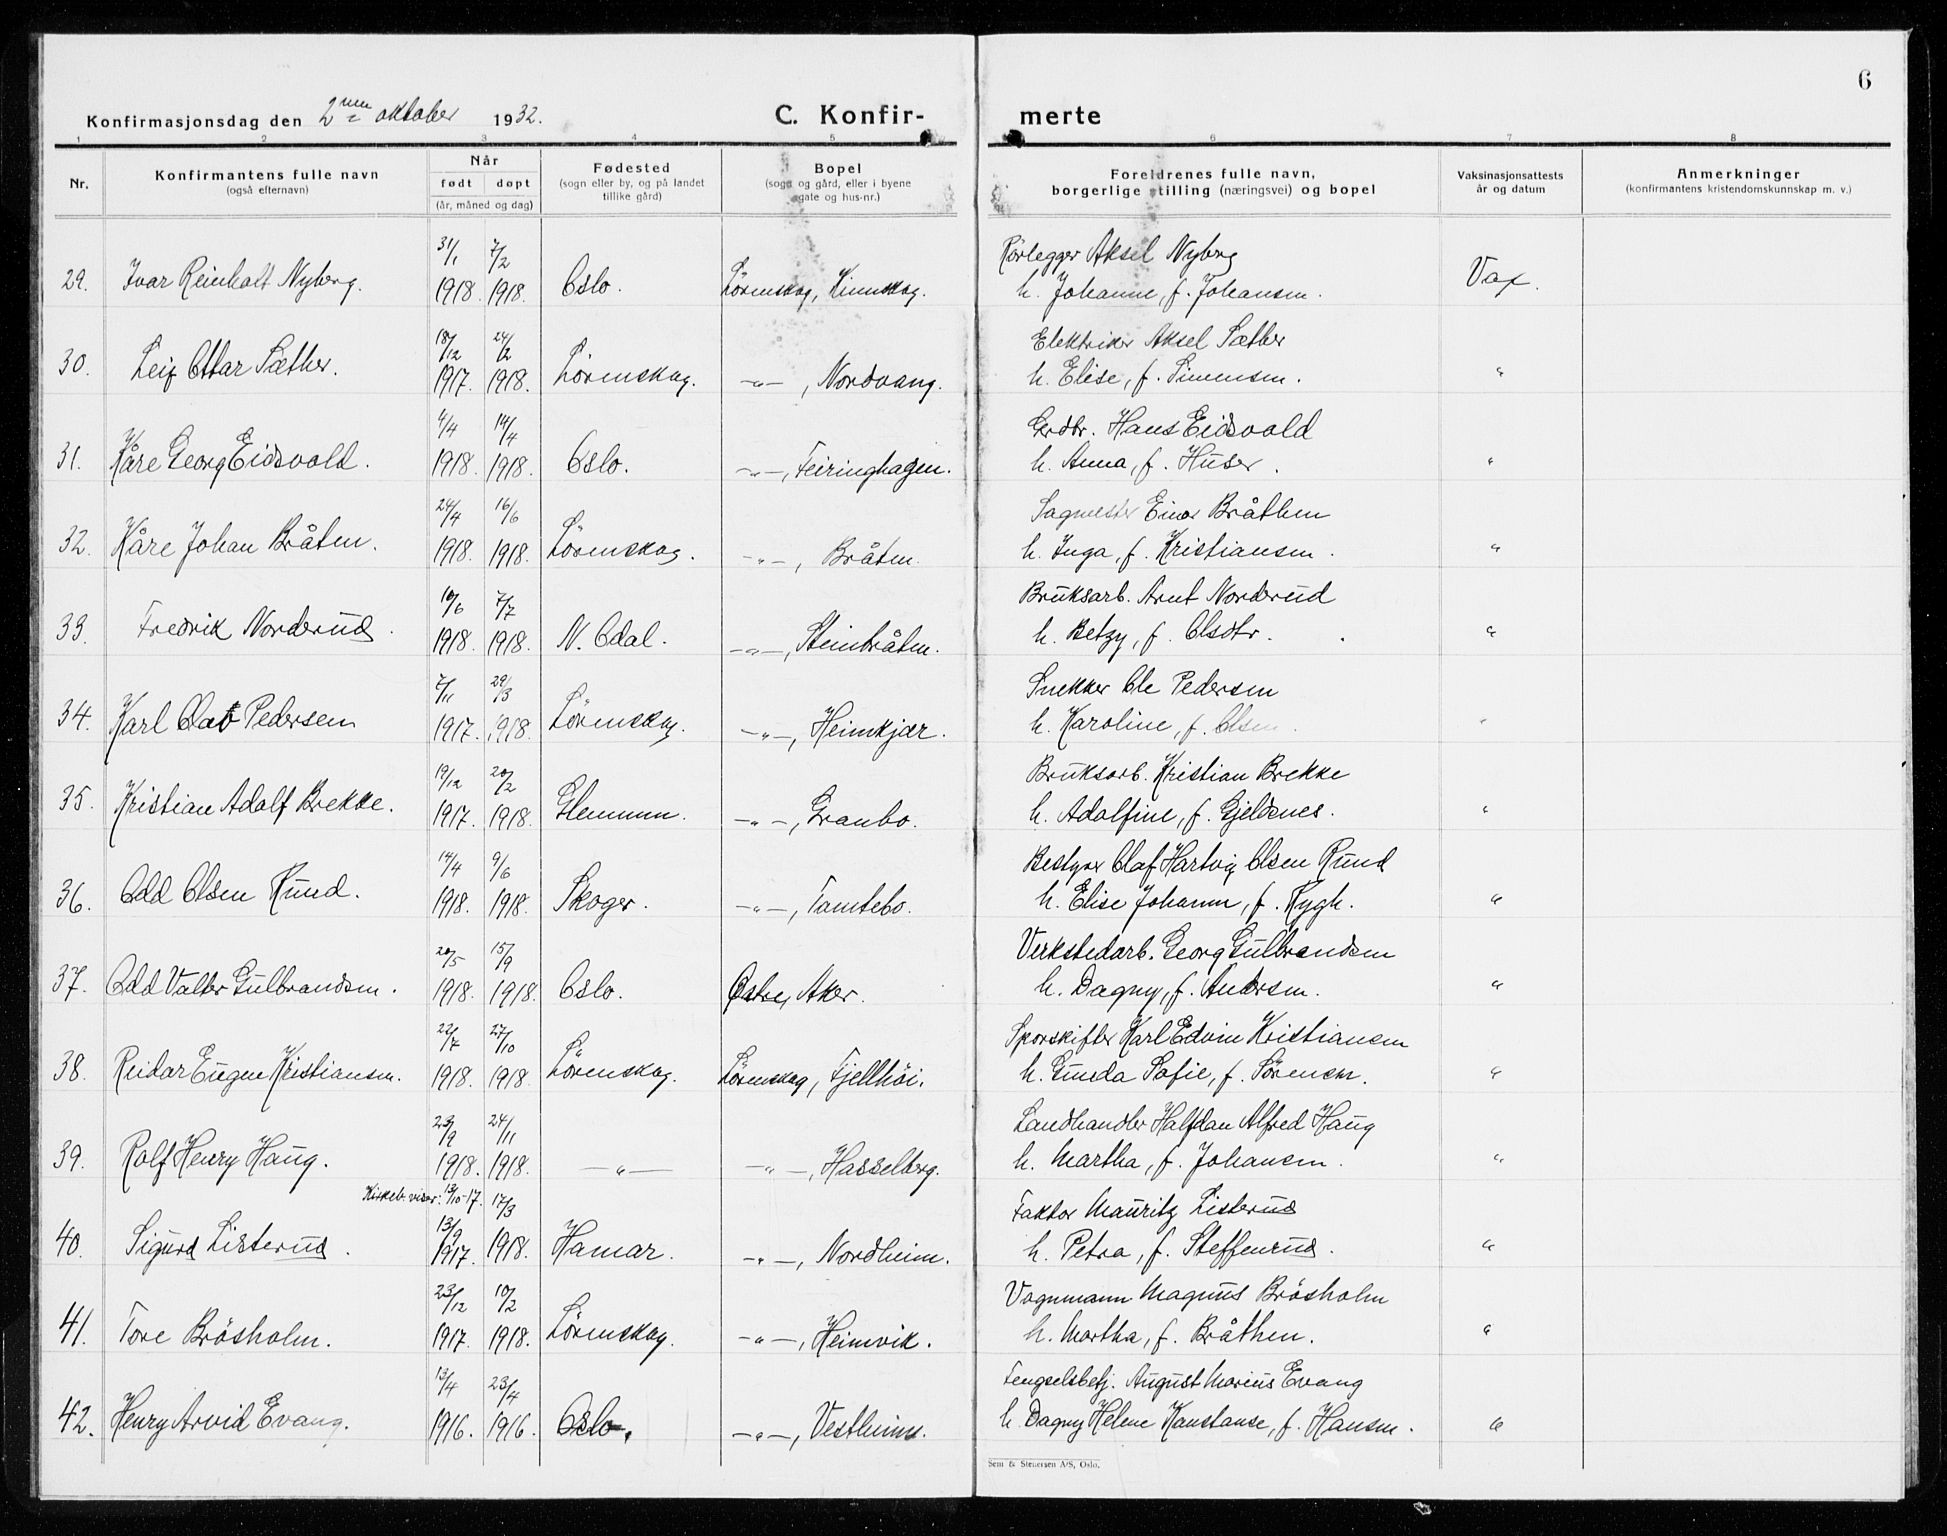 6
Konfirmasjonsdag den 2nen oktober 1932. C. Konfir- merte
1 2 3 4 5 6 7 8
Nr. Konfirmantens fulle navn (også efternavn) Når født døpt (år, måned og dag) Fødested (sogn eller by, og på landet tillike gård) Bopel (sogn og gård, eller i byene gate og hus-nr.) Foreldrenes fulle navn, borgerlige stilling (næringsvei) og bopel Vaksinasjonsattests år og datum Anmerkninger (konfirmantens kristendomskunnskap m. v.)
31/1 7/2 Rørlegger Aksel Nyberg
29. Ivar Reinholt Nyberg. 1918. 1918. Oslo. Lörenskog, Kinnskog. h. Johanne, f. Johansen. Vax.
18/12 24/2 Elektriker Aksel Sæther
30. Leif Ottar Sæther. 1917. 1918. Lörenskog. -"-, Nordvang. h. Elise, f. Simensen. "
4/4 14/4 Grdbr. Hans Eidsvold
31. Kåre Georg Eidsvold. 1918. 1918. Oslo. -"-, Feiringhagen. h. Anna, f. Huser. "
24/4 16/6 Sagmester Einar Bråthen
32. Kåre Johan Bråten. 1918. 1918. Lörenskog. -"-, Bråten. h. Inga, f. Kristiansen. "
10/6 7/7 Bruksarb. Arnt Norderud
33. Fredrik Norderud. 1918. 1918. N. Odal. -"-, Steinbråten. h. Betzy, f. Olsdtr. "
7/11 29/3 Snekker Ole Pedersen
34. Karl Olav Pedersen 1917. 1918. Lörenskog. -"-, Heimkjær. h. Karoline, f. Olsen. "
19/12 20/2 Bruksarb. Kristian Brekke
35. Kristian Adolf Brekke. 1917. 1918. Glemmen. -"-, Granbo. h. Adolfine, f. Gjeldnes. "
14/4 9/6 Bestyrer Olaf Hartvig Olsen Rund
36. Odd Olsen Rund. 1918. 1918. Skoger. -"-, Tamtebo. h. Elise Johanne, f. Rygh. "
20/5 15/9 Verkstedarb. Georg Gulbrandsen
37. Odd Valter Gulbrandsen. 1918. 1918. Oslo. Östre, Aker. h. Dagny, f. Andersen. "
22/7 27/10 Sporskifter Karl Edvin Kristiansen
38. Reidar Eugen Kristiansen. 1918. 1918. Lörenskog. Lörenskog, Fjellhöi. h. Gunda Sofie, f. Sörensen. "
23/9 24/11 Landhandler Halfdan Alfred Haug
39. Rolf Henry Haug. 1918. 1918. -"- -"-, Hasselberg. h. Martha, f. Johansen. "
Kirkeb. viser: 13/10-17. 17/3 Faktor Mauritz Listerud
13/9
40. Sigurd Listerud. 1917. 1918. Hamar. -"-, Nordheim. h. Petra, f. Steffensrud. "
23/12 10/2 Vognmann Magnus Brösholm
41. Tore Brösholm. 1917. 1918. Lörenskog. -"-, Heimvik. h. Martha, f. Bråthen. "
13/4 23/4 Fengselsbetj. August Marius Evang
42. Henry Arvid Evang. 1916. 1916. Oslo. -"-, Vestheim. h. Dagny Helene Konstanse, f. Hansen. "
Sem & Stenersen A/S, Oslo.